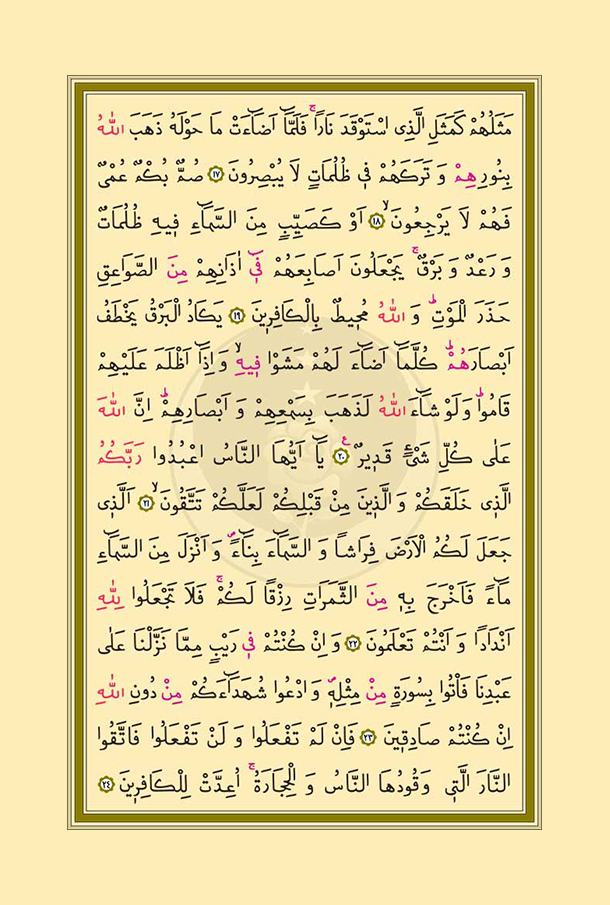 مَثَلُهُمْ كَمَثَلِ الَّذِى اسْتَوْقَدَ نَارًاۚ فَلَمَّٓا اَضَٓاءَتْ مَا حَوْلَهُ ذَهَبَ اللّٰهُ
بِنُورِهِمْ وَ تَرَكَهُمْ فٖى ظُلُمَاتٍ لَا يُبْصِرُونَ ﴿١٧﴾ صُمٌّ بُكْمٌ عُمْىٌ
فَهُمْ لَا يَرْجِعُونَۙ ﴿١٨﴾ اَوْ كَصَيِّبٍ مِنَ السَّمَٓاءِ فٖيهِ ظُلُمَاتٌ
وَ رَعْدٌ وَ بَرْقٌۚ يَجْعَلُونَ اَصَابِعَهُمْ فٖٓى اٰذَانِهِمْ مِنَ الصَّوَاعِقِ
حَذَرَ الْمَوْتِؕ وَ اللّٰهُ مُحٖيطٌ بِالْكَافِرٖينَ ﴿١٩﴾ يَكَادُ الْبَرْقُ يَخْطَفُ
اَبْصَارَهُمْؕ كُلَّمَٓا اَضَٓاءَ لَهُمْ مَشَوْا فٖيهِۙ وَ اِذَٓا اَظْلَمَ عَلَيْهِمْ
قَامُواؕ وَلَوْ شَٓاءَ اللّٰهُ لَذَهَبَ بِسَمْعِهِمْ وَ اَبْصَارِهِمْؕ اِنَّ اللّٰهَ
عَلٰى كُلِّ شَىْءٍ قَدٖيرٌ ﴿٢٠﴾ يَٓا اَيُّهَا النَّاسُ اعْبُدُوا رَبَّكُمُ
الَّذٖى خَلَقَكُمْ وَ الَّذٖينَ مِنْ قَبْلِكُمْ لَعَلَّكُمْ تَتَّقُونَۙ ﴿٢١﴾ اَلَّذٖى
جَعَلَ لَكُمُ الْاَرْضَ فِرَاشًا وَ السَّمَٓاءَ بِنَٓاءًࣕ وَ اَنْزَلَ مِنَ السَّمَٓاءِ
مَٓاءً فَاَخْرَجَ بِهٖ مِنَ الثَّمَرَاتِ رِزْقًا لَكُمْۚ فَلَا تَجْعَلُوا لِلّٰهِ
اَنْدَادًا وَ اَنْتُمْ تَعْلَمُونَ ﴿٢٢﴾ وَ اِنْ كُنْتُمْ فٖى رَيْبٍ مِمَّا نَزَّلْنَا عَلٰى
عَبْدِنَا فَاْتُوا بِسُورَةٍ مِنْ مِثْلِهٖࣕ وَ ادْعُوا شُهَدَٓاءَكُمْ مِنْ دُونِ اللّٰهِ
اِنْ كُنْتُمْ صَادِقٖينَ ﴿٢٣﴾ فَاِنْ لَمْ تَفْعَلُوا وَ لَنْ تَفْعَلُوا فَاتَّقُوا
النَّارَ الَّتٖى وَقُودُهَا النَّاسُ وَ الْحِجَارَةُۚ اُعِدَّتْ لِلْكَافِرٖينَ ﴿٢٤﴾